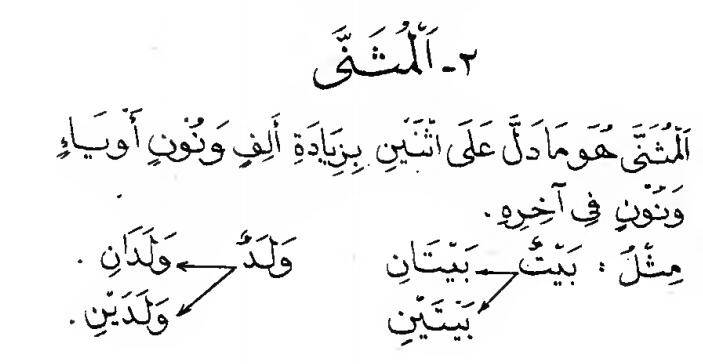 ٢- اَلْمُثَنَّى
اَلْمُثَنَّى هُوَ مَا دَلَّ عَلَى اثْنَيْنِ بِزِيَادَةِ أَلِفٍ وَنُوْنٍ أَوْ يَاءٍ
وَنُوْنٍ فِي آخِرِهِ.
مِثْلُ : بَيْتٌ بَيْتَانِ وَلَدٌ وَلَدَانِ .
بَيْتَيْنِ وَلَدَيْنِ .